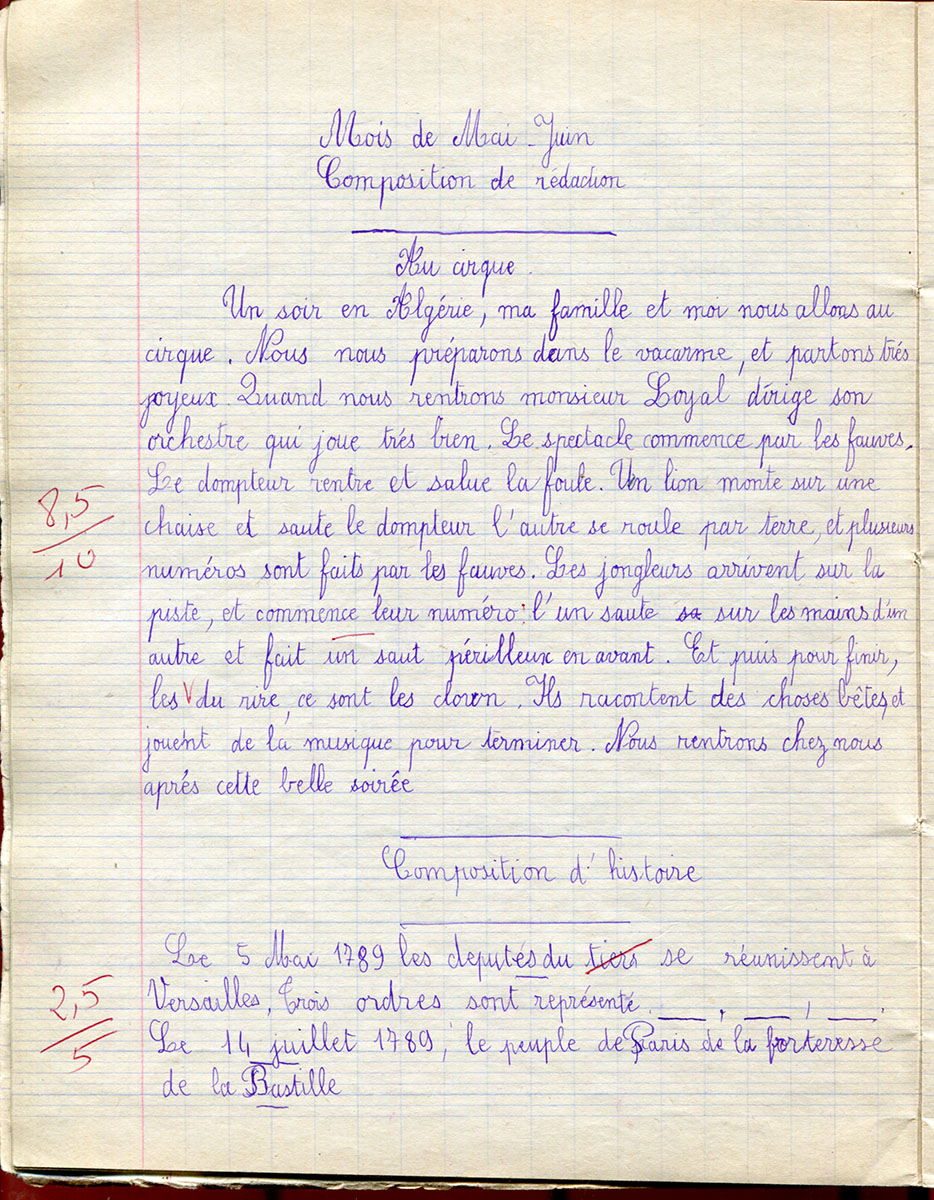 Mois de Mai-Juin
Composition de rédaction
Au cirque.
Un soir en Algérie, ma famille et moi nous allons au
cirque. Nous nous préparons dans le vacarme, et partons trés
joyeux. Quand nous rentrons monsieur Loyal dirige son
orchestre qui joue trés bien. Le spectacle commence par les fauves.
Le dompteur rentre et salue la foule. Un lion monte sur une
8,5
10
chaise et saute le dompteur l'autre se roule par terre, et plusieurs
numéros sont faits par les fauves. Les jongleurs arrivent sur la
piste, et commence leur numéro: l'un saute sa sur les mains d'un
autre et fait un saut périlleux en avant. Et puis pour finir,
les V du rire, ce sont les clown. Ils racontent des choses bêtes, et
jouent de la musique pour terminer. Nous rentrons chez nous
aprés cette belle soirée
Composition d'histoire
Le 5 Mai 1789 les deputés du tiers se réunissent à
2,5
5
Versailles. Trois ordres sont représenté. ___, ___, ___.
Le 14 juillet 1789, le peuple de Paris de la forteresse
de la Bastille